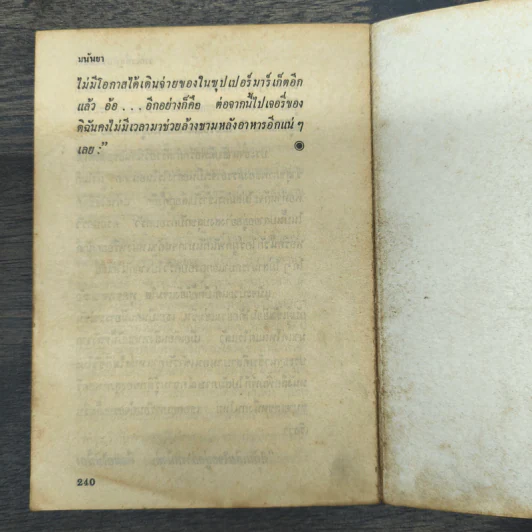 มนันยา
ไม่มีโอกาสได้เดินจ่ายของในซุปเปอร์มาร์เก็ตอีก
แล้ว อ้อ . . . อีกอย่างก็คือ ต่อจากนี้ไปเจอรี่ของ
ดิฉันคงไม่มีเวลามาช่วยล้างชามหลังอาหารอีกแน่ ๆ
เลย :”
240